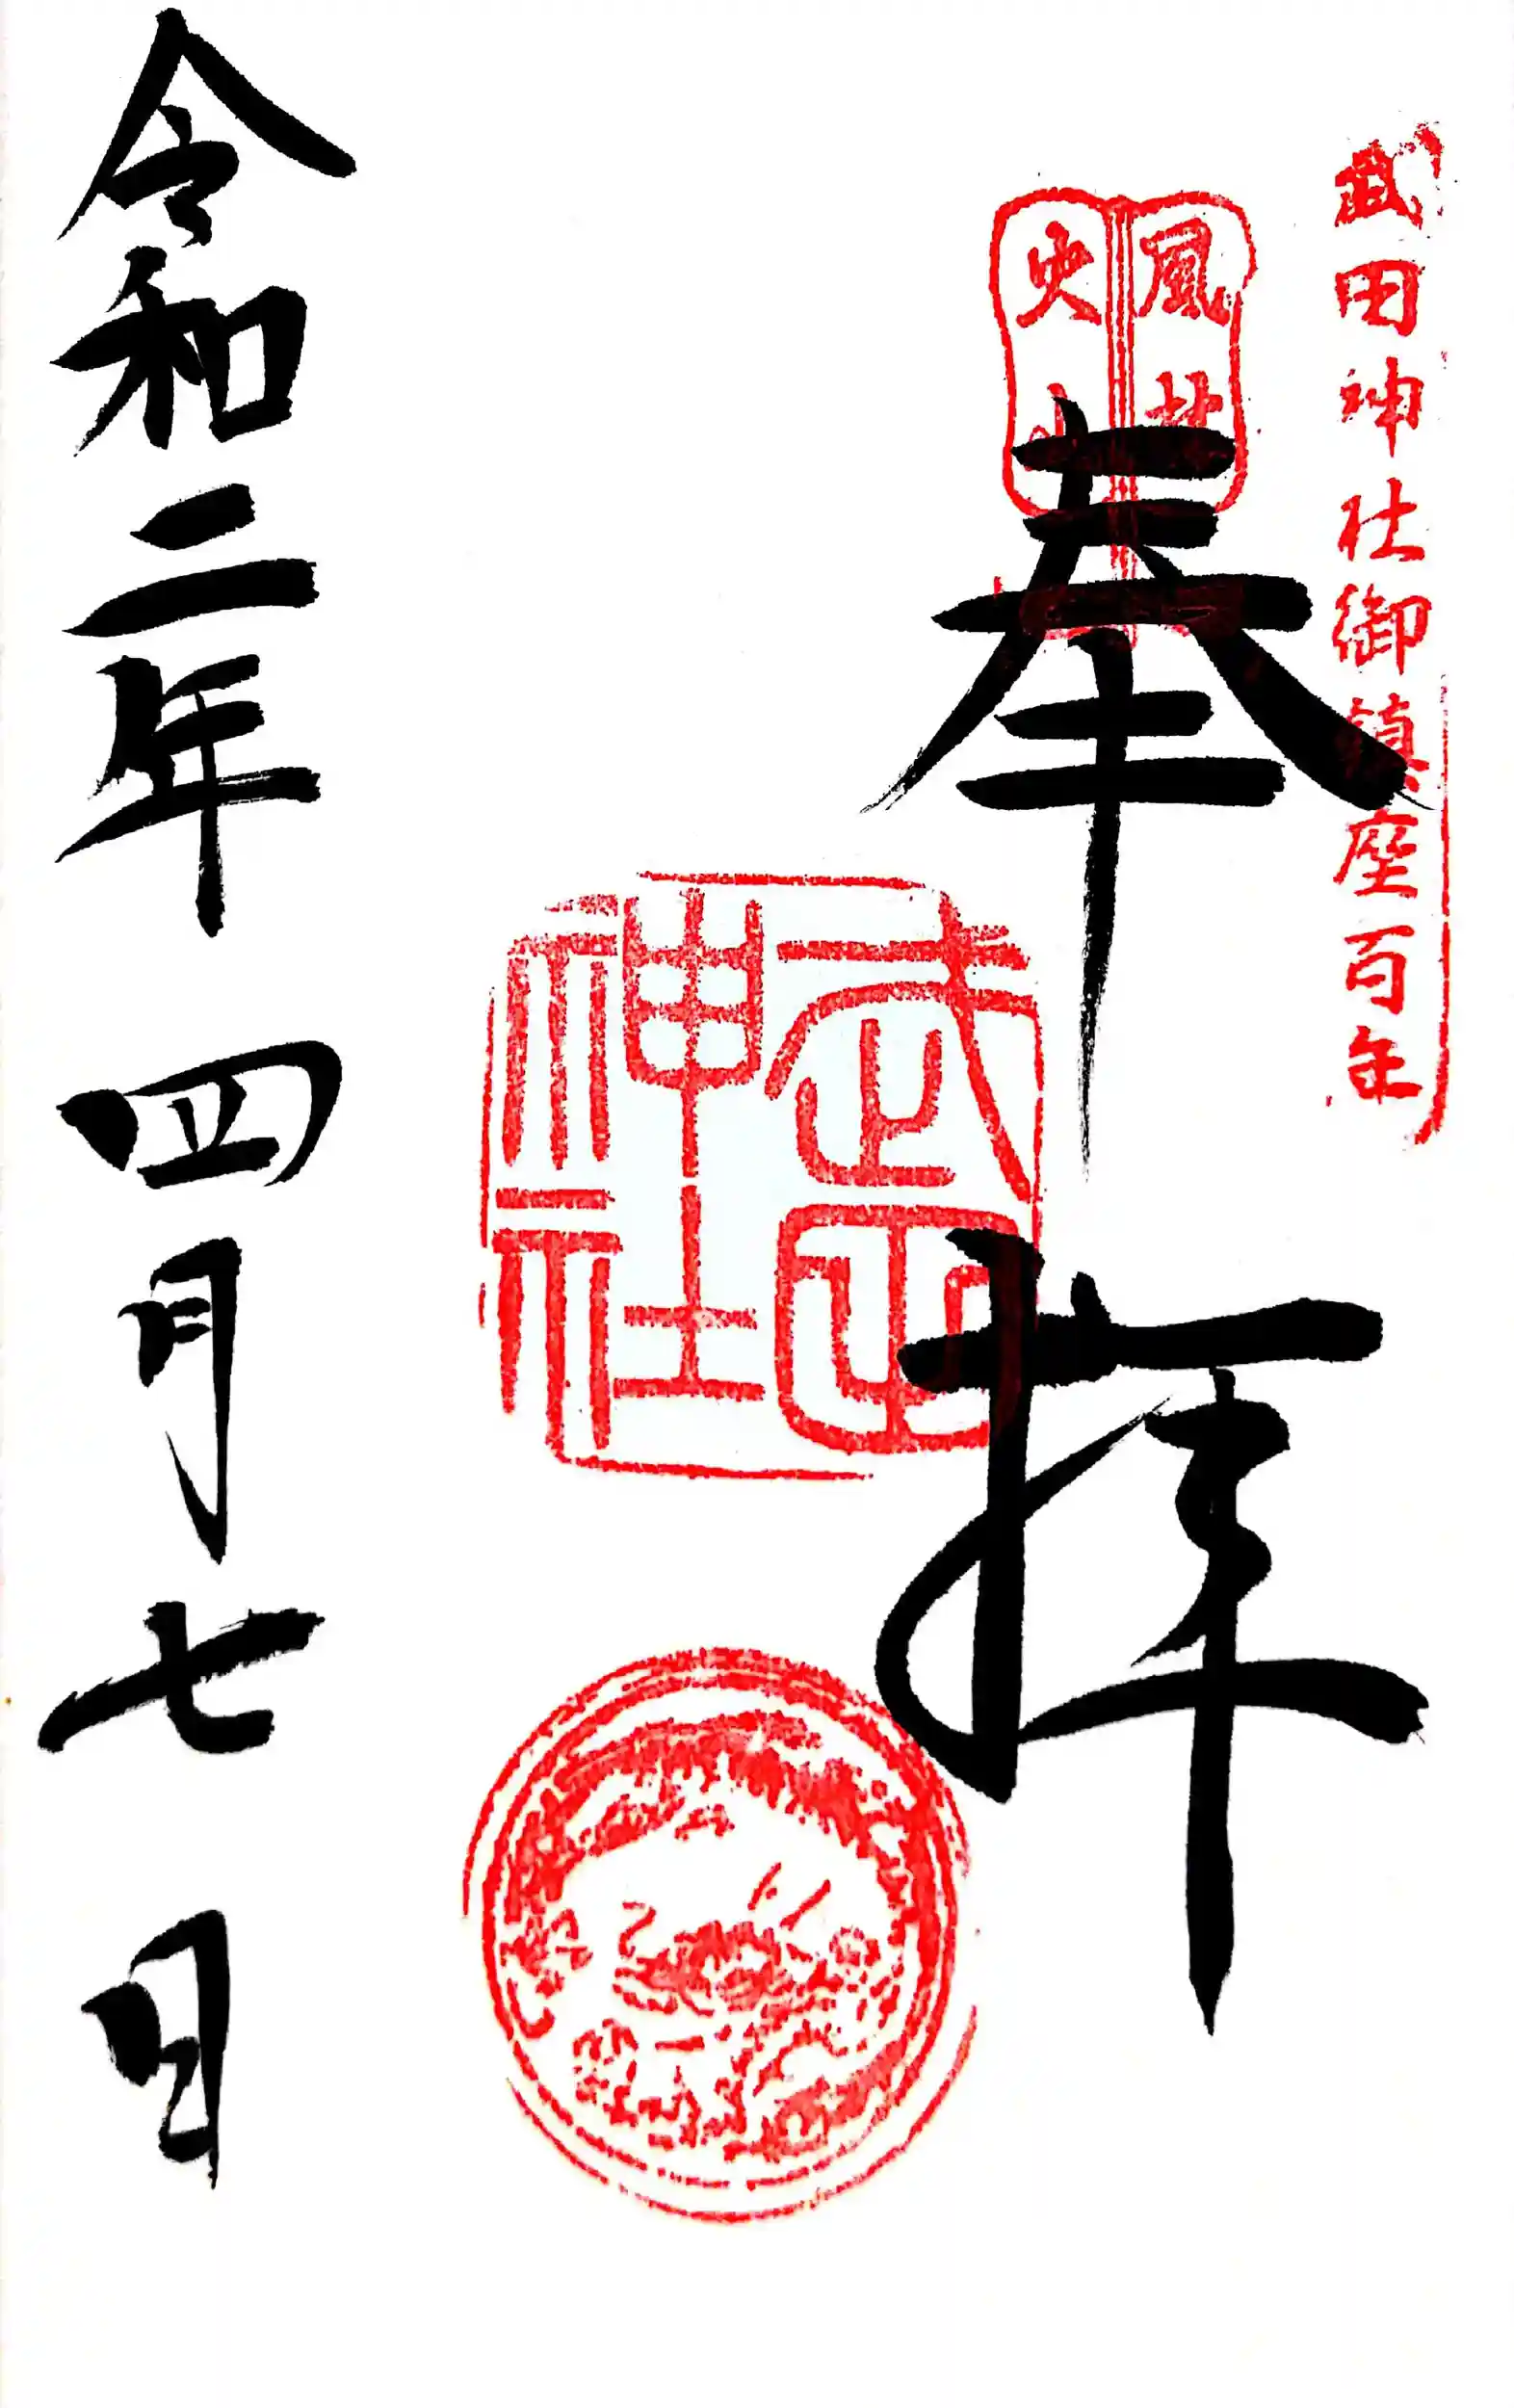 武田神社御鎮座百年
風林
火山
奉拝
武田
神社
令和二年四月七日